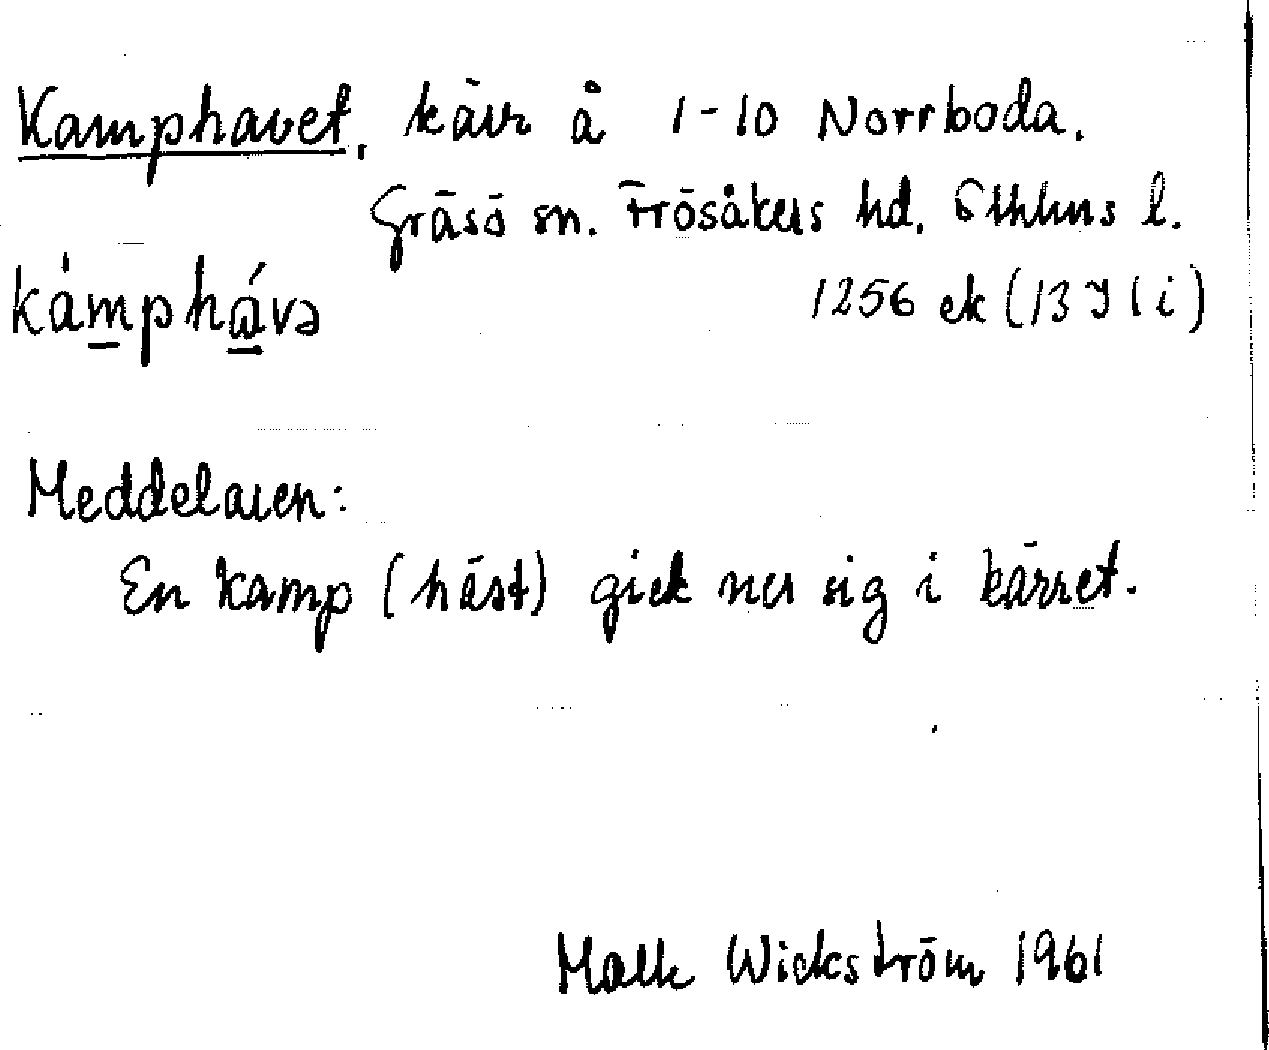 Kamphavet, kärr å 1-10 Norrboda.
Gräsö sn. Frösåkers hd. Sthlms l.
kámphávə
1256 ek (13 J 1 i)
Meddelaren:
En kamp (häst) gick ner sig i kärret.
Wickström 1961